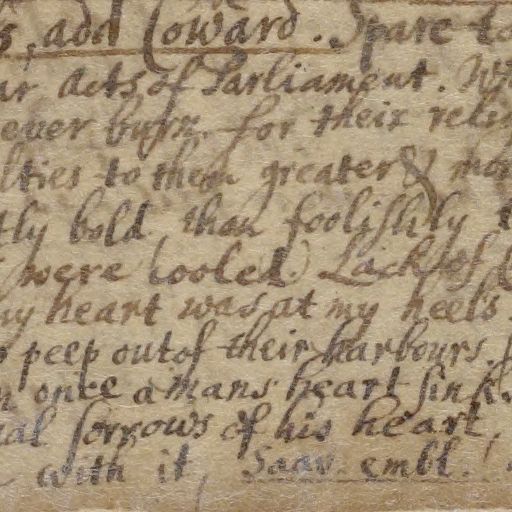 , add Coward. Spare to
ar Acts of Parliament. W
ever burn for their reli
lties to them greater & mo
tly bold than foolishly t
were cooled. Lack of
my heart was at my heels.
peep out of their harbours.
n once a mans heart sink.
ial sorrows of his heart,
with it, Saav. embl.